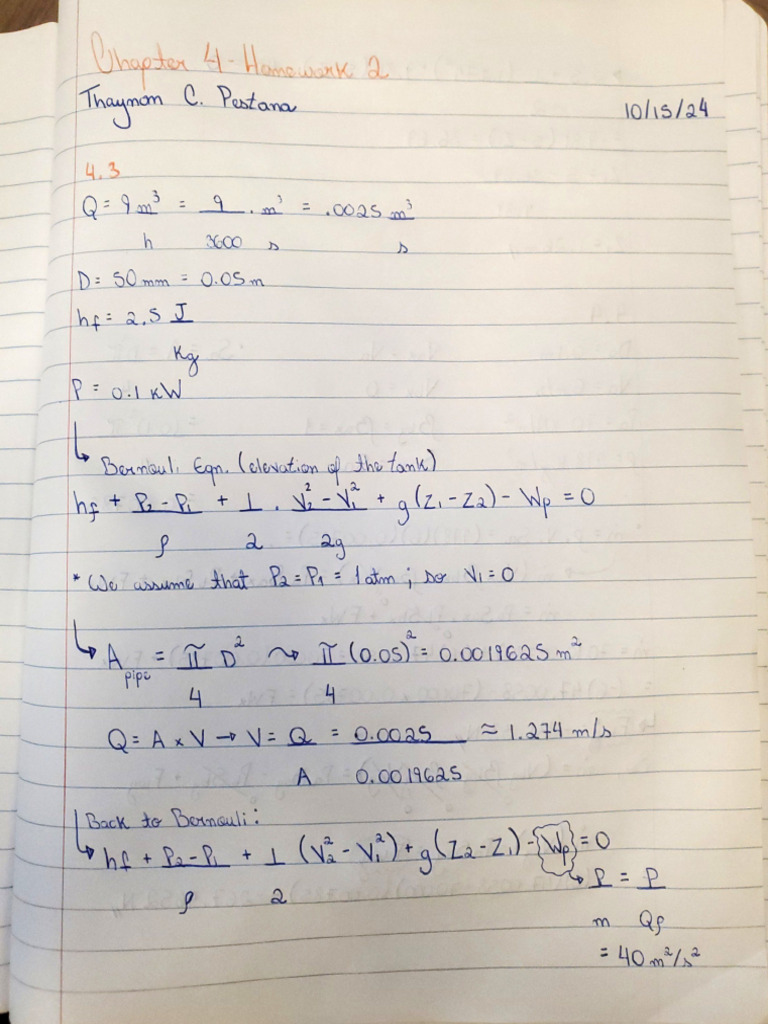 Chapter 4 - Homework 2
Thaynom C. Pestana 10/15/24
4.3
Q = 9 m³/h = 9/3600 · m³/s = .0025 m³/s
D = 50 mm = 0.05 m
hf = 2.5 J/Kg
P = 0.1 KW
↳ Bernouli Eqn. (elevation of the tank)
hf + (P2 - P1)/ρ + 1/2 · (V2² - V1²)/2g + g(Z1 - Z2) - Wp = 0
* We assume that P2 = P1 = 1 atm ; so V1 = 0
↳ A pipe = π/4 D² ⤳ π/4 (0.05)² = 0.0019625 m²
Q = A × V → V = Q/A = 0.0025/0.0019625 ≈ 1.274 m/s
Back to Bernouli:
↳ hf + (P2 - P1)/ρ + 1/2 (V2² - V1²) + g(Z2 - Z1) - Wp = 0
↳ P/m = P/Qρ
= 40 m²/s²